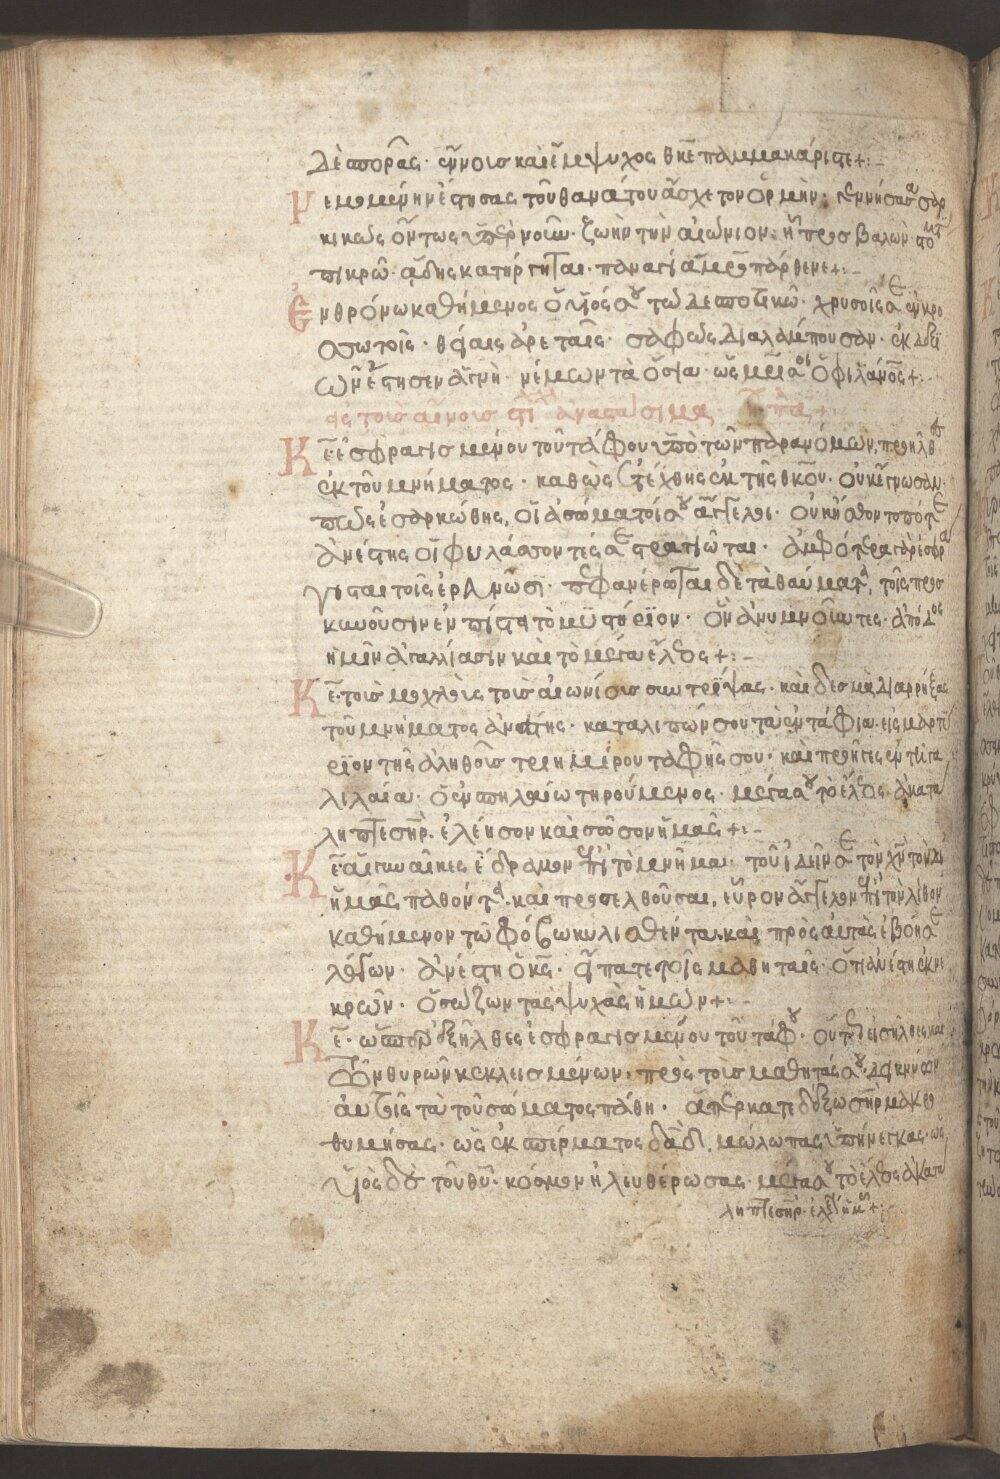 δε απορᾶς· ἔννους καὶ ἔμψυχος θκε παμμακάριστε +:-
Ρεμομένην ἔστησας τοῦ θανάτου ἄσχετον ὁρμήν· γεννήσασα σαρ
κικῶς ὄντως ὑπὲρ νοῦν· ζωὴν τὴν αἰώνιον· ᾗ προσβαλὼν
πικρῶ· ἅδης κατήργηται· παναγία παρθενε +:-
Ἐν θρόνω καθήμενος ὁ υἱός σου τῶ δεσποτικῶ· χρυσοῖς σε ἐν κρο
σσωτοῖς· θείαις ἀρεταῖς· σαφῶς διαλάμπουσαν· ἐκ δεξι
ῶν ἔστησεν ἁγνή· νέμων τὰ ὅσια· ὡς
εἰς τοὺς αἴνους στιχ ἀναστάσιμα
Κε ἐσφραγισμένου τοῦ τάφου ὑπὸ τῶν παρανόμων, προῆλθες
ἐκ τοῦ μνήματος· καθὼς ἐτέχθης ἐκ τῆς θκου· οὐκ ἔγνωσαν·
πῶς ἐσαρκώθης, οἱ ἀσώματοί σου ἄγγελοι· οὐκ ἤσθοντο πότε
ἀνέστης οἱ φυλάσσοντές σε στρατιῶται· ἀμφότερα γὰρ ἐσφρά
γισται τοῖς ἐρευνῶσι· πεφανέρωται δὲ τὰ θαύματα, τοῖς προσ
κυνοῦσιν ἐν πίστει τὸ μυστήριον· ὃν ἀνυμνοῦντες· ἀπόδος
ἡμῖν ἀγαλλίασιν καὶ τὸ μέγα ἔλεος +:-
Κε τοὺς μοχλοὺς τοὺς αἰωνίους συντρίψας· καὶ δεσμὰ διαρρήξας
τοῦ μνήματος ἀνέστης· καταλιπών σου τὰ ἐντάφια· εἰς μαρτύ
ριον τῆς ἀληθοῦς τριημέρου ταφῆς σου· καὶ προῆγες ἐν τῆ γα
λιλαία· ὁ ἐν σπηλαίω τηρούμενος· μέγα σου τὸ ἔλεος ἀκατά
ληπτε σηρ· ἐλέησον καὶ σῶσον ἡμᾶς +:-
Κε αἱ γυναῖκες ἔδραμον ἐπὶ τὸ μνῆμα· τοῦ ἰδεῖν σε τὸν χν τὸν δι
ἡμᾶς παθόντα· καὶ προσελθοῦσαι, εὗρον ἄγγελον ἐπὶ τὸν λίθον
καθήμενον τῶ φόβω κυλισθέντα· καὶ πρὸς αὐτὰς ἐβόησε
λέγων· ἀνέστη ὁ κς· εἴπατε τοῖς μαθηταῖς· ὅτι ἀνέστη ἐκ νε
κρῶν· ὁ σώζων τὰς ψυχὰς ἡμῶν +:-
Κε· ὥσπερ ἐξῆλθες ἐσφραγισμένου τοῦ τάφου· οὕτως εἰσῆλθες καὶ
τῶν θυρῶν κεκλεισμένων· πρὸς τοὺς μαθητάς σου· δεικνύων
αὐτοῖς τὰ τοῦ σώματος πάθη· ἅπερ κατεδέξω σηρ μακρο
θυμήσας· ὡς ἐκ σπέρματος δαδ, μώλωπας ὑπήνεγκας· ὡς
υἱὸς δὲ τοῦ θυ· κόσμον ἠλευθέρωσας· μέγα σου τὸ ἔλεος ἀκατά
ληπτε σηρ· ἐλέησον ἡμᾶς +:-